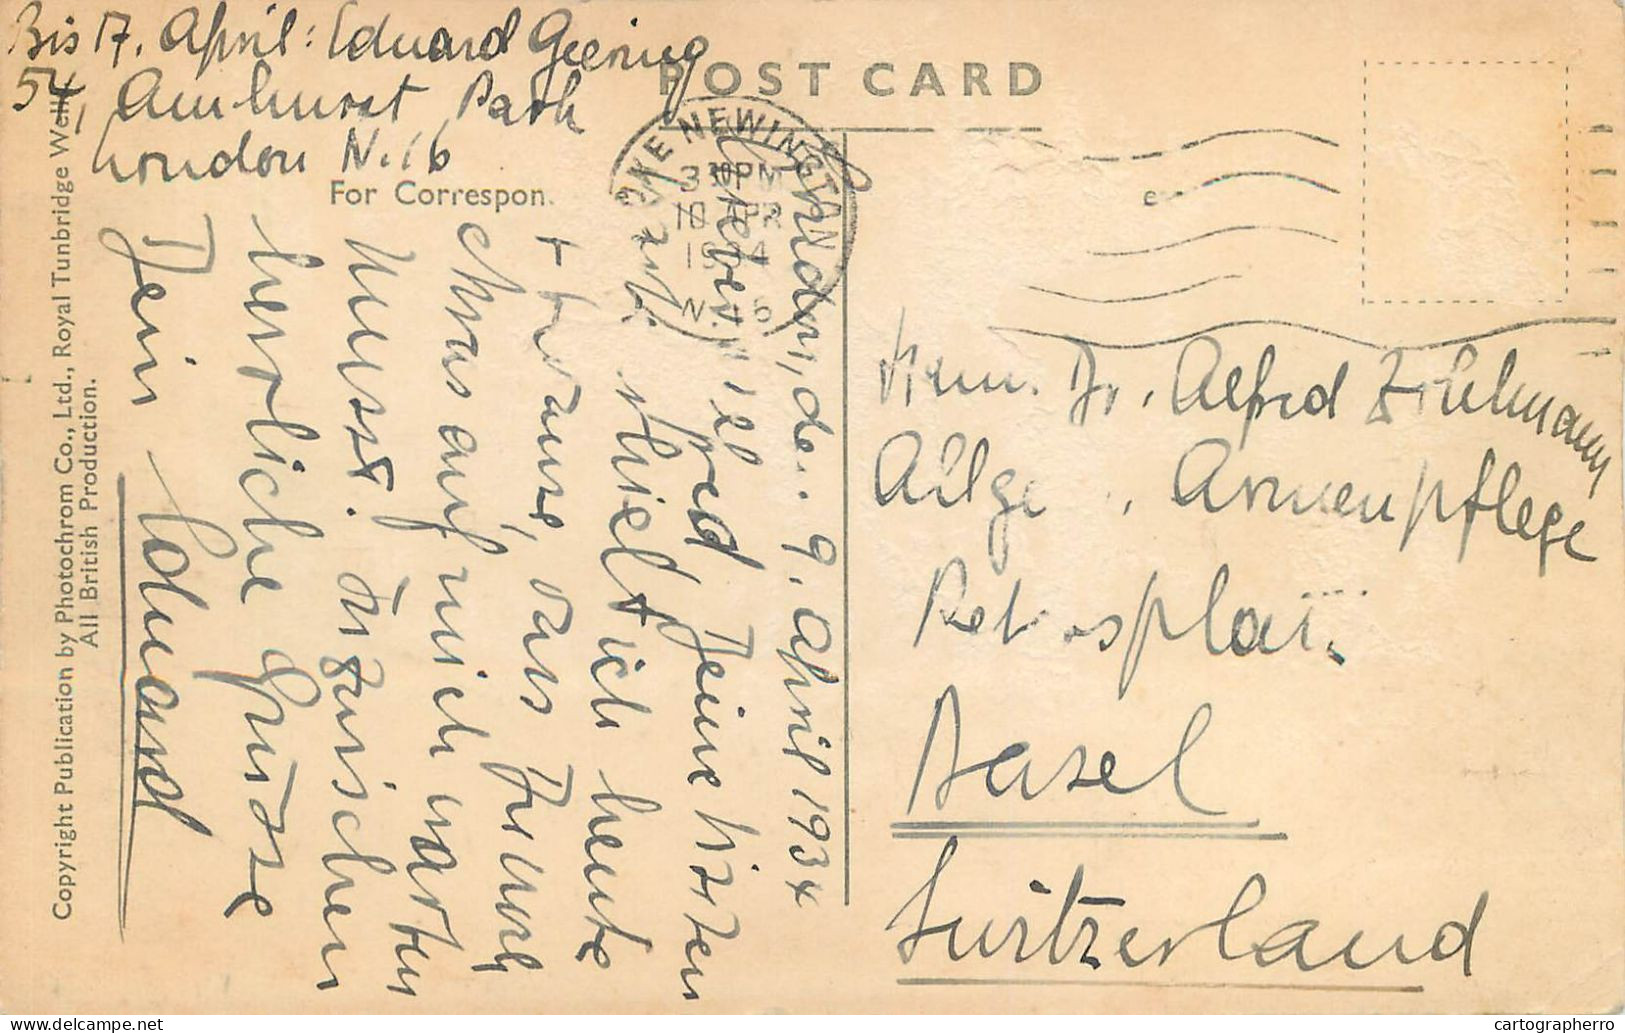 Bis 17. April: Eduard Geering
54, Amhurst Park
London N. 16
POST CARD
For Correspon
NEWINGTON
3 30 PM
10 APR
1934
N. 16
London, de.. 9. April 1934
Lieber Alfred, Deine Karten
erhielt ich heute
+ traure, dass Du noch
etwas auf mich warten
musst. Inzwischen
herzliche Grüsse
Dein Eduard
Herrn Dr. Alfred
Allg. Armenpflege
Petersplatz
Basel
Switzerland
Copyright Publication by Photochrom Co., Ltd., Royal Tunbridge Wells
All British Production.
www.delcampe.net
cartographerro